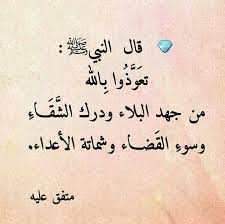 💎 قال النبي ﷺ :
تعَوَّذُوا بِالله
من جهد البلاء ودرك الشَّقَاءِ
وسوءِ القَضاء وشماتة الأعداء.
متفق عليه